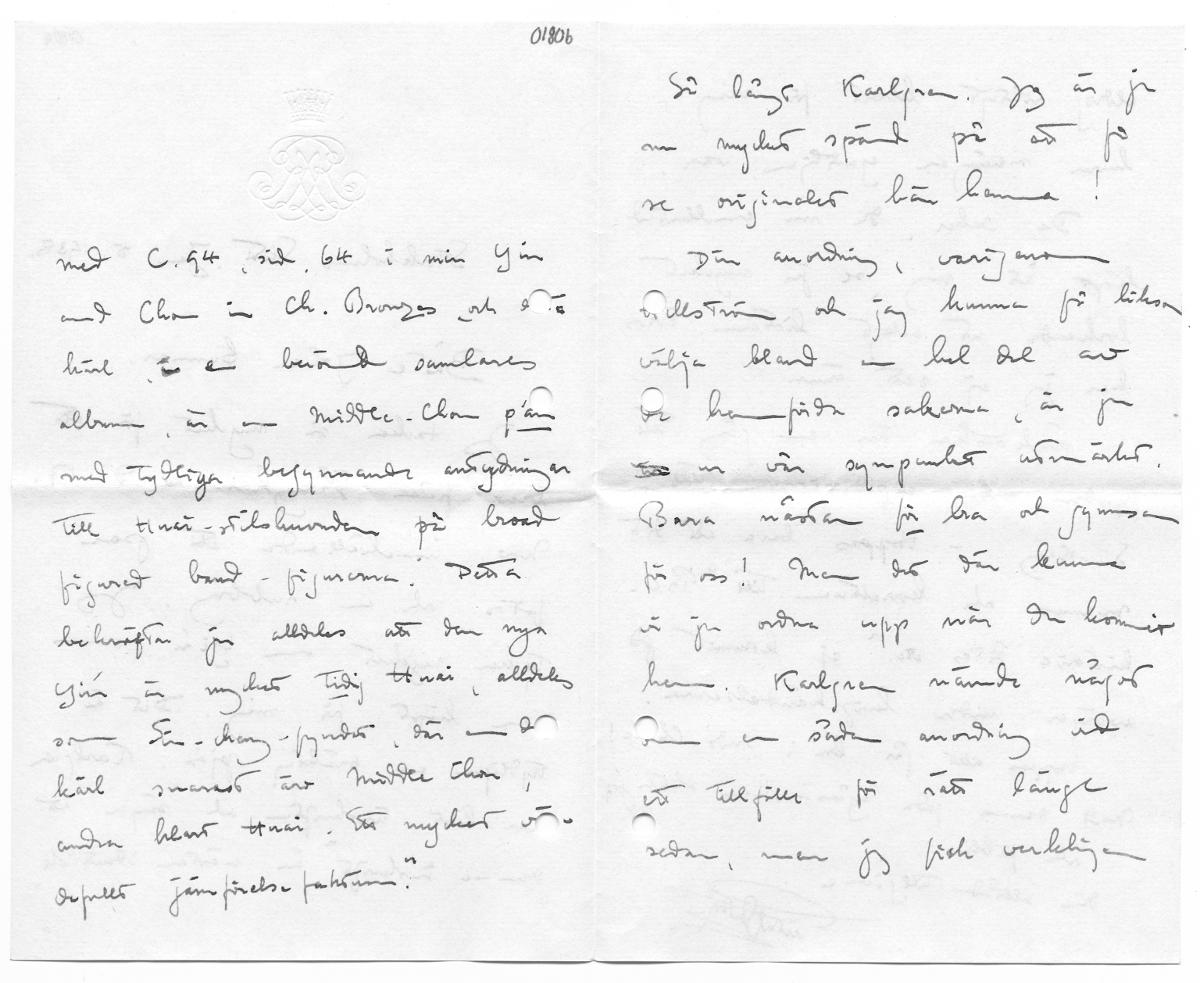 01806
med C. 94, sid. 64 i min Yin
and Chou in Ch. Bronzes, och
kärl i en berömd samlares
album, är en Middle-Chou p'an
med tydliga begynnande antydningar
till Huai-stilskurvorna på broad
figured band-figurerna. Detta
bekräftar ju alldeles att den nya
är mycket tidig Huai, alldeles
som Sin-cheng-fyndet, där en del
kärl snarast äro Middle Chou,
andra klart Huai. Ett mycket vär-
defullt jämförelsefaktum."
Så långt Karlgren. Jag är ju
nu mycket spänd på att få
se originalet här hemma!
Din anordning, varigenom
Hellström och jag kunna få liksom
välja bland en hel del av
de hemförda sakerna, är ju
ur vår synpunkt utmärkt.
Bara nästan för bra och gynnsam
för oss! Men det där kunna
vi ju ordna upp när Du kommit
hem. Karlgren nämnde något
om en sådan anordning vid
ett tillfälle för rätt länge
sedan, men jag fick verkligen